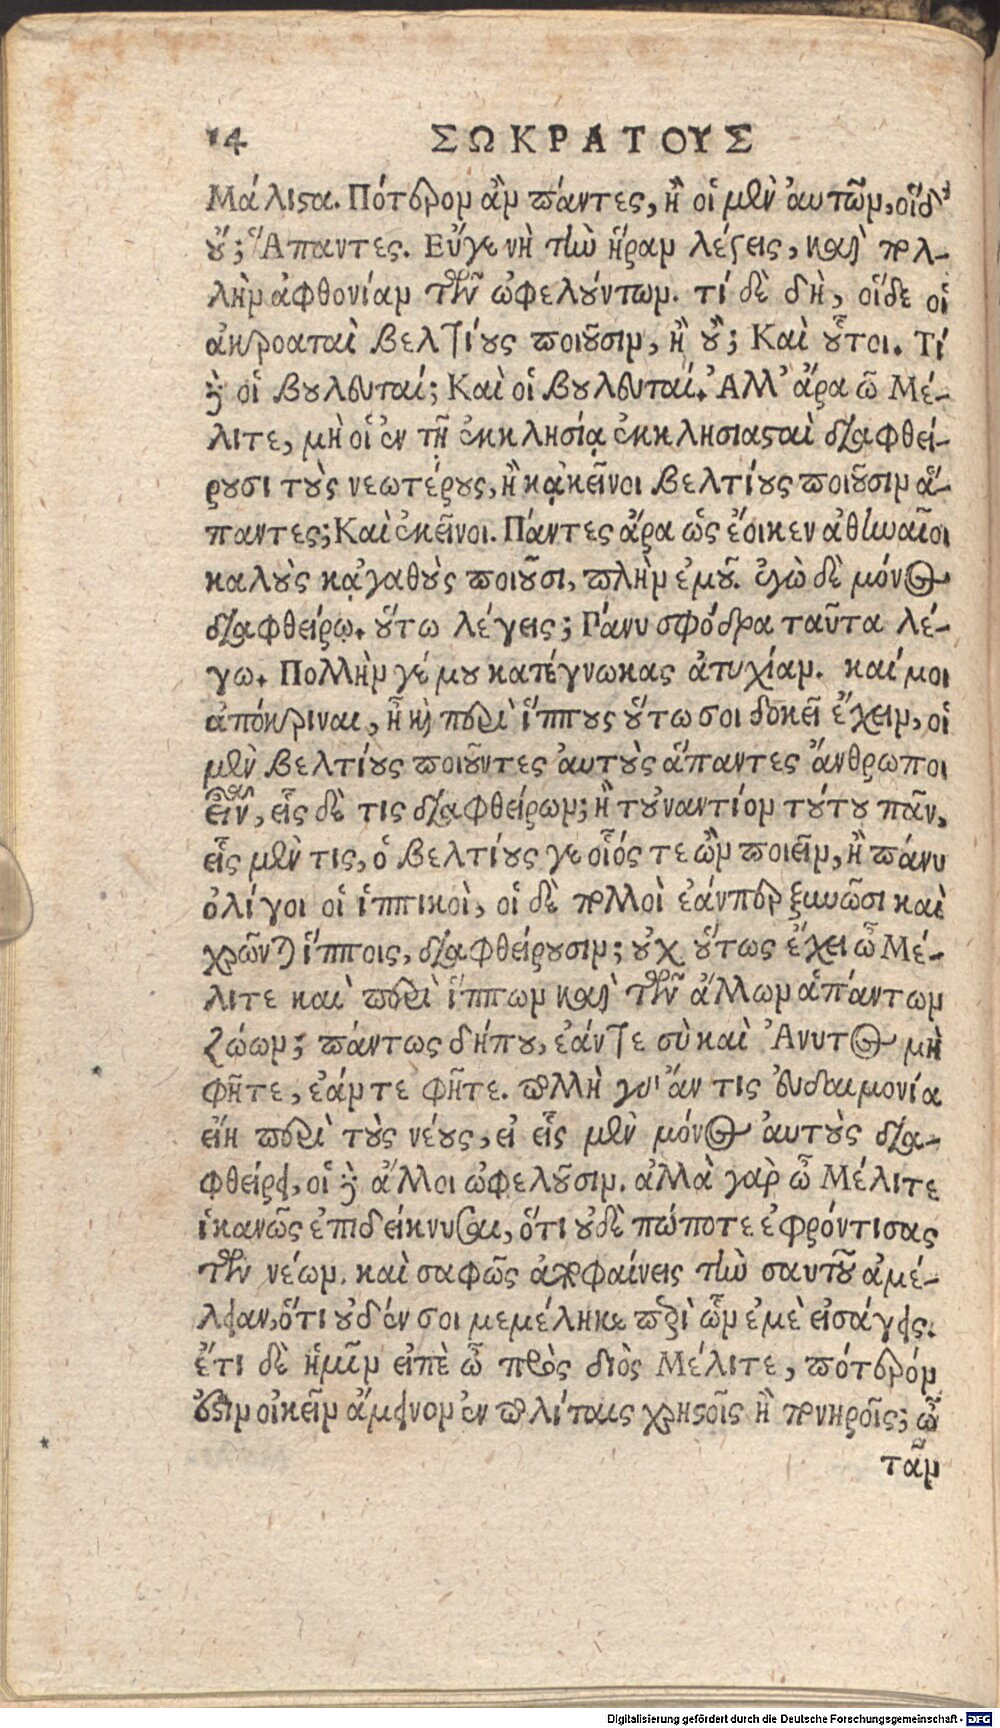 14 ΣΩΚΡΑΤΟΥΣ
Μάλιϛα. Πότερον ἂν πάντες, ἢ οἱ μὲν ἀυτῶν, οἵδ'
ȣ̓́; Ἅπαντες. Εὖγε νὴ τὴν ἥραν λέγεις, καὶ πολ-
λὴν ἀφθονίαν τῶν ὠφελȣ́ντων. τί δὲ δὴ, οἵδε οἱ
ἀκροαταὶ βελτίȣς ποιȣ͂σιν, ἢ ȣ̓́; Καὶ ȣ̔͂τοι. Τί
δὲ οἱ βȣλευταί; Καὶ οἱ βȣλευταί. Ἀλλ' ἄρα ὦ Μέ-
λιτε, μὴ οἱ ἐν τῇ ἐκκλησίᾳ ἐκκλησιαϛαὶ διαφθεί-
ρȣσι τȣ̀ς νεωτέρȣς, ἢ κᾀκεῖνοι βελτίȣς ποιȣ͂σιν ἅ-
παντες; Καὶ ἐκεῖνοι. Πάντες ἄρα ὡς ἔοικεν ἀθηναῖοι
καλȣ̀ς κᾀγαθȣ̀ς ποιȣ͂σι, πλὴν ἐμȣ͂. ἐγὼ δὲ μόνος
διαφθείρῳ. ȣ̔́τω λέγεις; Πάνυ σφόδρα ταῦτα λέ-
γω. Πολλὴν γέ μȣ κατέγνωκας ἀτυχίαν. καί μοι
ἀπόκριναι, ἦ κὶ περὶ ἵππȣς ȣ̔́τω σοι δοκεῖ ἔχειν, οἱ
μὲν βελτίȣς ποιȣ͂ντες ἀυτȣ̀ς ἅπαντες ἄνθρωποι
εἶναι, εἷς δὲ τις διαφθείρων; ἢ τȣ̓ναντίον τȣ́τȣ πᾶν,
εἷς μὲν τις, ὁ βελτίȣς γε οἷός τε ὢν ποιεῖν, ἢ πάνυ
ὀλίγοι οἱ ἱππικοὶ, οἱ δὲ πολλοὶ ἐάνπερ ξυνῶσι καὶ
χρῶνται ἵπποις, διαφθείρȣσιν; ȣ̓χ ȣ̔́τως ἔχει ὦ Μέ-
λιτε καὶ περὶ ἵππων καὶ τῶν ἄλλων ἁπάντων
ζώων; πάντως δήπȣ, ἐάντε σὺ καὶ Ἄνυτος μὴ
φῆτε, ἐάν τε φῆτε. πολλὴ γὰρ ἄν τις ἐυδαιμονία
εἴη περὶ τȣ̀ς νέȣς, εἰ εἷς μὲν μόνος ἀυτȣ̀ς δια-
φθείρει, οἱ δὲ ἄλλοι ὠφελȣ͂σιν. ἀλλὰ γαρ ὦ Μέλιτε
ἱκανῶς ἐπιδείκνυσαι, ὅτι ȣ̓δὲ πώποτε ἐφρόντισας
τῶν νέων. καὶ σαφῶς ἀποφαίνεις τὴν σαυτȣ͂ ἀμέ-
λειαν, ὅτι ȣ̓δέν σοι μεμέληκε περὶ ὧν ἐμὲ εἰσάγεις.
ἔτι δὲ ἡμῖν εἰπὲ ὦ πρὸς διὸς Μέλιτε, πότερόν
ἐϛιν οἰκεῖν ἄμεινον ἐν πολίταις χρηϛοῖς ἢ πονηροῖς; ὦ
τᾶν
Digitalisierung gefördert durch die Deutsche Forschungsgemeinschaft - DFG